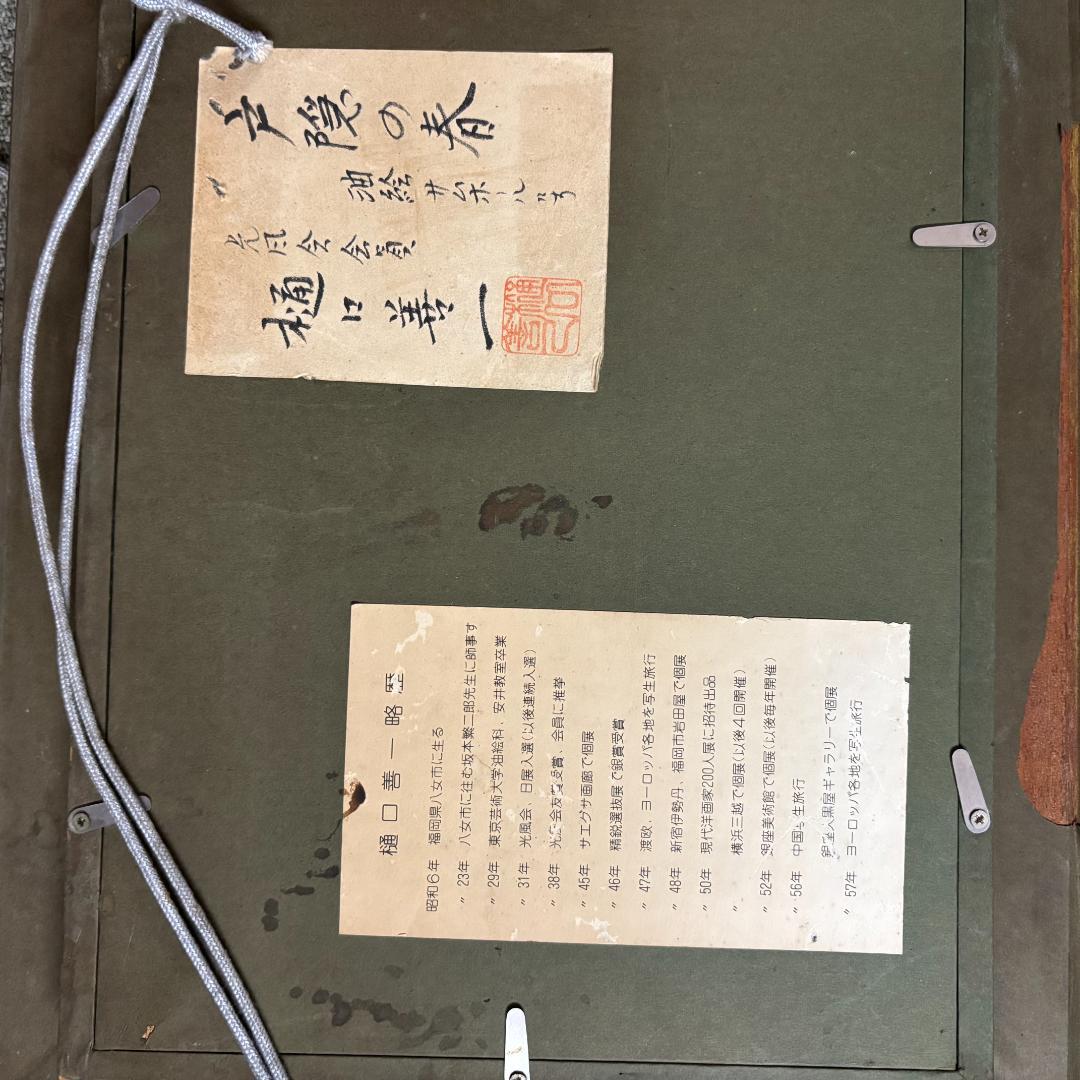 戸隠の春
油絵 サムホール号
光風会会員
樋口善一
樋口善一略歴
昭和6年 福岡県八女市に生る
〃 23年 八女市に住む坂本繁二郎先生に師事す
〃 29年 東京芸術大学油絵科、安井教室卒業
〃 31年 光風会、日展入選(以後連続入選)
〃 38年 光風会友賞受賞、会員に推挙
〃 45年 サエグサ画廊で個展
〃 46年 精鋭選抜展で銀賞受賞
〃 47年 渡欧、ヨーロッパ各地を写生旅行
〃 48年 新宿伊勢丹、福岡市岩田屋で個展
〃 50年 現代洋画家200人展に招待出品
〃 横浜三越で個展(以後4回開催)
〃 52年 銀座美術館で個展(以後毎年開催)
〃 56年 中国写生旅行
銀座大黒屋ギャラリーで個展
〃 57年 ヨーロッパ各地を写生旅行